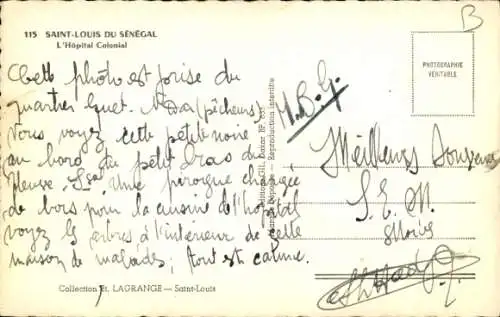 115 SAINT-LOUIS DU SÉNÉGAL
L'Hôpital Colonial
B
PHOTOGRAPHIE
VÉRITABLE
Cette photo est prise du
quartier Guet. N'Dar (pêcheurs)
Vous voyez cette petite noire
au bord du petit bras du
fleuve. Une pirogue chargée
de bois pour la cuisine de l'hôpital
voyez les arbres à l'intérieur de cette
maison de malades; tout est calme.
M.B.G.
Meilleurs Souvenirs
S. E. M.
Collection Et. LAGRANGE — Saint-Louis
Reproduction interdite